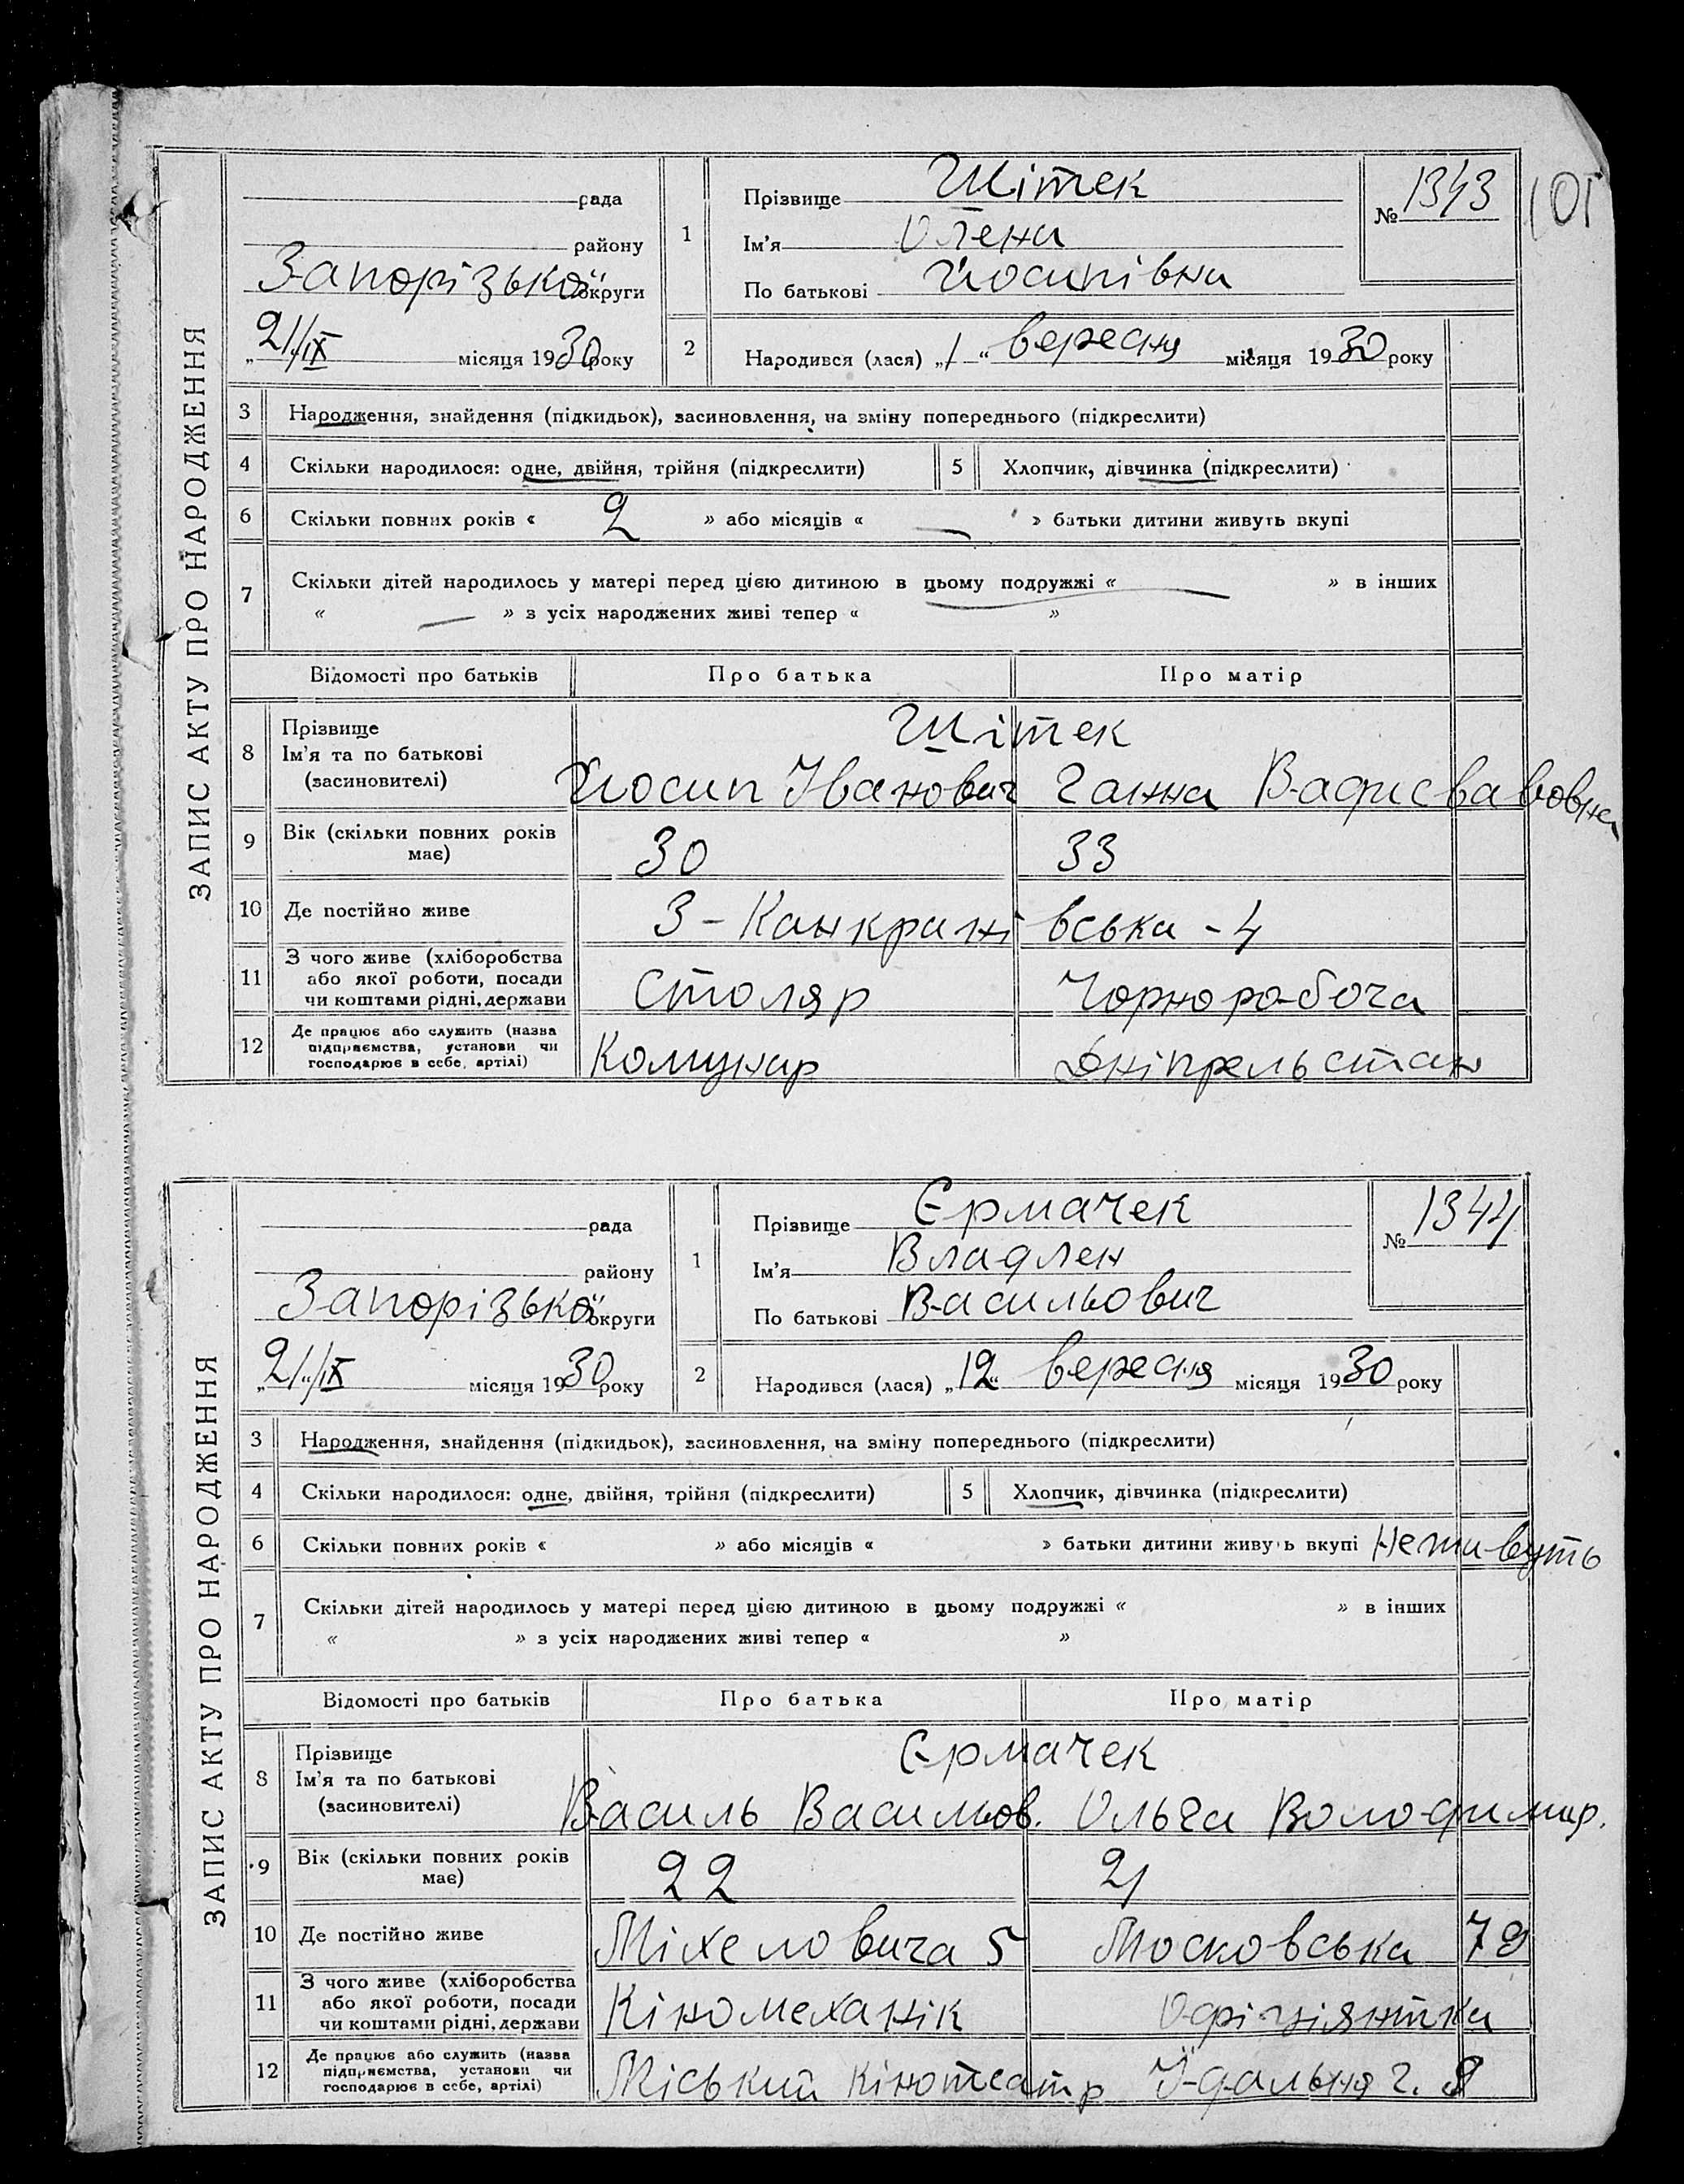 101
ЗАПИС АКТУ ПРО НАРОДЖЕННЯ
рада
району
Запорізької округи
„21/IX місяця 1930 року
1
Прізвище Шітек
Ім'я Олена
По батькові Йосипівна
№ 1343
2
Народився (лася) „1“ вересня місяця 1930 року
3 Народження, знайдення (підкидьок), засиновлення, на зміну попереднього (підкреслити)
4 Скільки народилося: одне, двійня, трійня (підкреслити)
5 Хлопчик, дівчинка (підкреслити)
6 Скільки повних років « 2 » або місяців « — » батьки дитини живуть вкупі
7 Скільки дітей народилось у матері перед цією дитиною в цьому подружжі « » в інших
« — » з усіх народжених живі тепер « »
Відомості про батьків Про батька Про матір
8 Прізвище
Ім'я та по батькові
(засиновителі)
Шітек
Йосип Іванович Ганна
9 Вік (скільки повних років
має)
30 33
10 Де постійно живе
3-Канкринівська - 4
11 З чого живе (хліборобства
або якої роботи, посади
чи коштами рідні, держави
Столяр Чорноробоча
12 Де працює або служить (назва
підприємства, установи чи
господарює в себе, артілі)
Комунар Дніпрельстан
ЗАПИС АКТУ ПРО НАРОДЖЕННЯ
рада
району
Запорізької округи
„21“/IX місяця 1930 року
1
Прізвище Єрмачек
Ім'я Владлен
По батькові Васильович
№ 1344
2
Народився (лася) „12“ вересня місяця 1930 року
3 Народження, знайдення (підкидьок), засиновлення, на зміну попереднього (підкреслити)
4 Скільки народилося: одне, двійня, трійня (підкреслити)
5 Хлопчик, дівчинка (підкреслити)
6 Скільки повних років « » або місяців « » батьки дитини живуть вкупі Не живуть
7 Скільки дітей народилось у матері перед цією дитиною в цьому подружжі « » в інших
« » з усіх народжених живі тепер « »
Відомості про батьків Про батька Про матір
8 Прізвище
Ім'я та по батькові
(засиновителі)
Єрмачек
Василь Васильов. Ольга Володимир.
9 Вік (скільки повних років
має)
22 21
10 Де постійно живе
Міхеловича 5 Московська 79
11 З чого живе (хліборобства
або якої роботи, посади
чи коштами рідні, держави
Кіномеханік Офіціянтка
12 Де працює або служить (назва
підприємства, установи чи
господарює в себе, артілі)
Міський кінотеатр Їдальня ч. 8